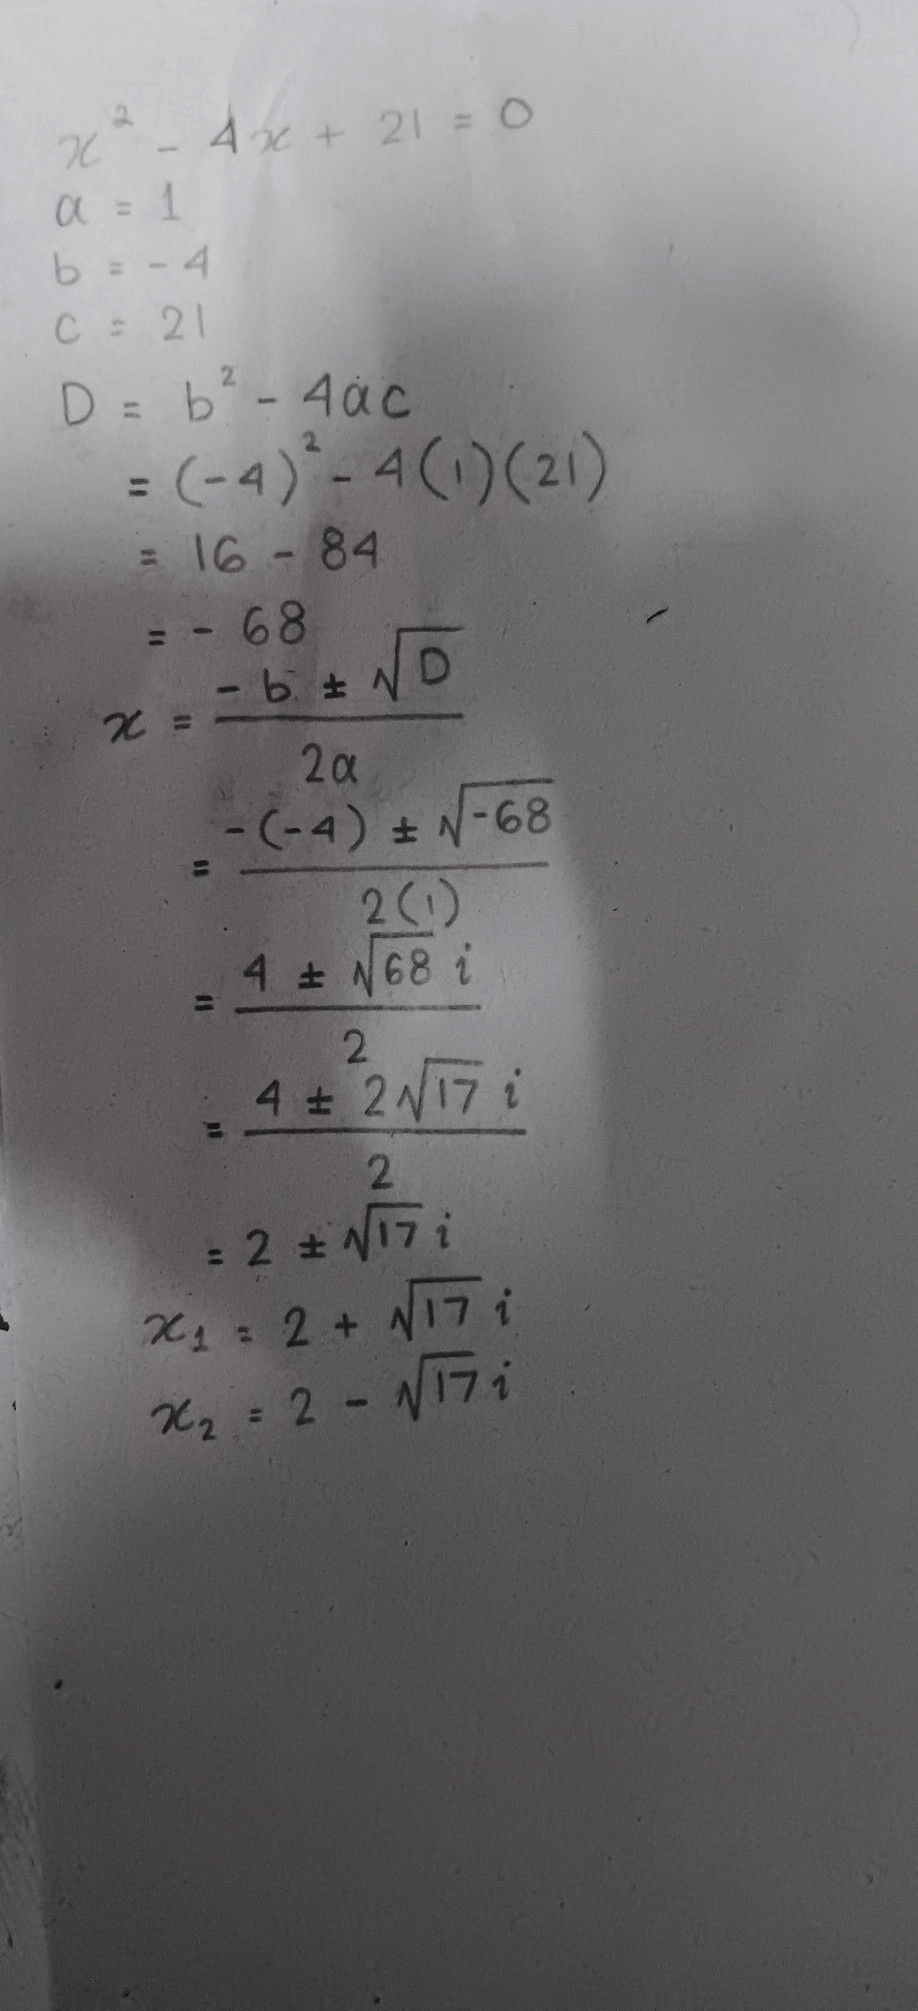 x² - 4x + 21 = 0
a = 1
b = -4
c = 21
D = b² - 4ac
= (-4)² - 4(1)(21)
= 16 - 84
= - 68
x = (-b ± √D) / 2a
= (-(-4) ± √-68) / 2(1)
= (4 ± √68 i) / 2
= (4 ± 2√17 i) / 2
= 2 ± √17 i
x₁ = 2 + √17 i
x₂ = 2 - √17 i